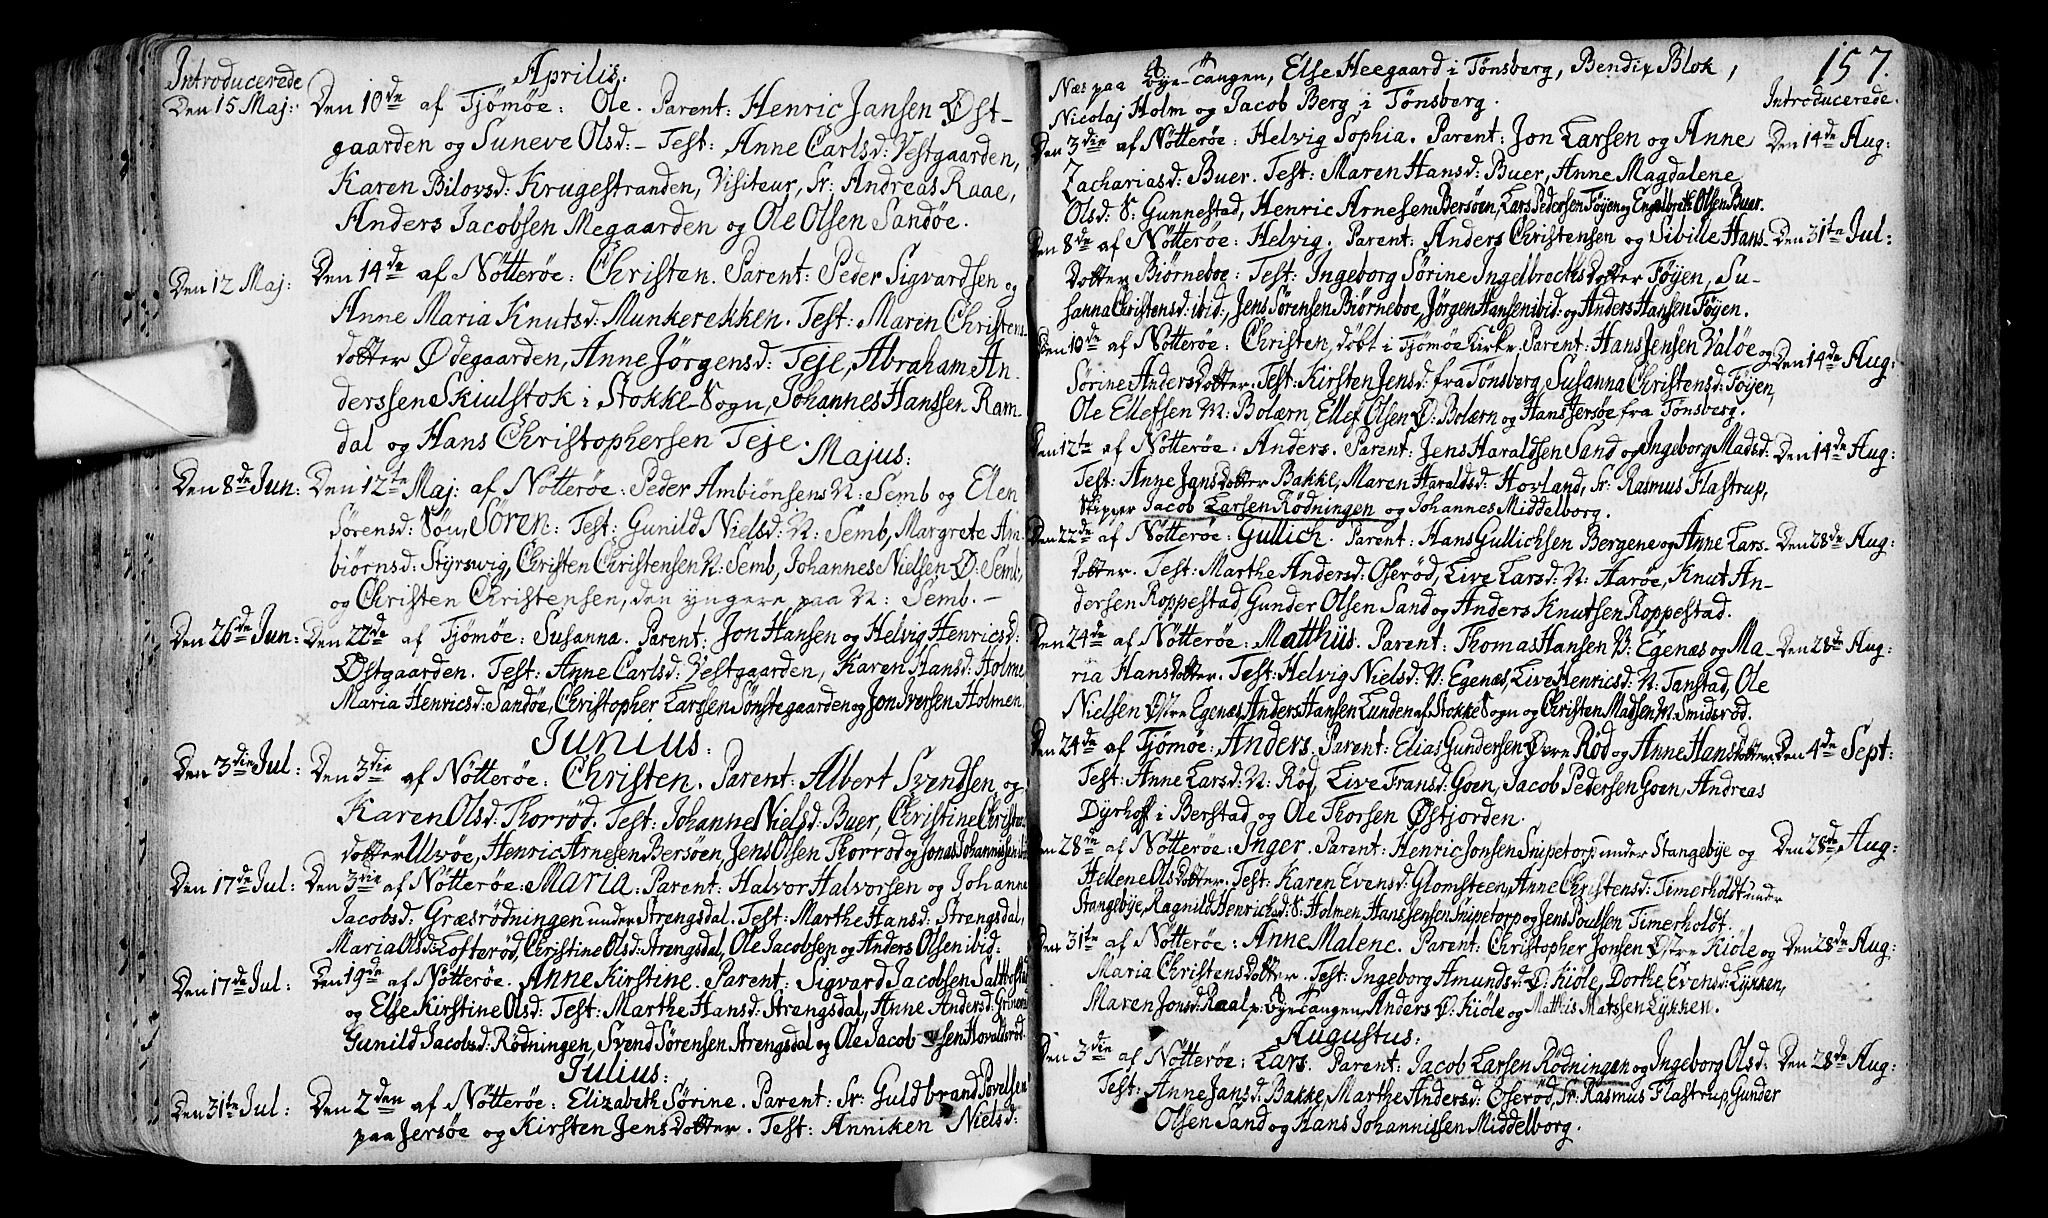 Introducerede
Aprilis:
Den 15 Maj: Den 10de af Tjömöe: Ole. Parent: Henric Jansen Øst-
gaarden og Suneve Olsd:- Test: Anne Carlsd: Vestgaarden,
Karen Bilovsd: Krugestranden, Visiteur, Sr: Andreas Raae,
Anders Jacobsen Megaarden og Ole Olsen Sandöe.
Den 12 Maj: Den 14de af Nötteröe: Christen. Parent: Peder Sigvardsen og
Anne Maria Knutsd: Munkerekken. Test: Maren Christens
dotter Ødegaarden, Anne Jörgensd: Teje, Abraham An-
derssen Skiulstok i Stokke-Sogn, Johannes Hanssen Ram-
dal og Hans Christophersen Teje.
Majus:
Den 8de Jun: Den 12te Maj: af Nötteröe: Peder Ambiönsens N: Semb og Elen
Sörensd: Sön, Sören: Test: Gunild Nielsd: N: Semb, Margrete Am-
biörnsd: Styrsvig, Christen Christensen N: Semb, Johannes Nielsen Ø: Semb,
og Christen Christensen, den yngere paa N: Semb. -
Den 26de Jun: Den 22de af Tjömöe: Susanna. Parent: Jon Hansen og Helvig Henricsd:
Østgaarden. Test: Anne Carlsd: Vestgaarden, Karen Hansd: Holme
Maria Henricsd: Sandöe, Christopher Larssen Sönstegaarden og Jon Iversen Holmen.
Junius:
Den 3die Jul: Den 3die af Nötteröe: Christen. Parent: Albert Svendsen og
Karen Olsd: Thorröd. Test: Johanne Nielsd: Buer, Christine Christens
dotter Ulvöe, Henric Arnesen Bersöen, Jens Olsen Thorröd og Jonas Johannissen
Den 17de Jul: Den 3die af Nötteröe: Maria: Parent: Halvor Halvorsen og Johanne
Jacobsd: Græsrödningen under Strengsdal. Test: Marthe Hansd: Strengsdal,
Maria Olsd: Lofteröd, Christine Olsd: Strengsdal, Ole Jacobsen og Anders Olsen ibid:
Den 17de Jul: Den 19de af Nötteröe. Anne Kirstine. Parent: Sigvard Jacobsen
og Else Kirstine Olsd: Test: Marthe Hansd: Strengsdal, Anne Andersd:
Gunild Jacobsd: Rödningen, Svend Sörensen Strengsdal og Ole Jacobsen Hovaldsröd.
Julius:
Den 31te Jul: Den 2den af Nötteröe: Elizabeth Sörine. Parent: Sr: Guldbrand Povelsen
paa Jersöe og Kirsten Jensdotter. Test: Anniken Nielsd:
157.
Næs paa Øye-Tangen, Else Heegaard i Tönsberg, Bendix Blok,
Nicolaj Holm og Jacob Berg i Tønsberg.
Introducerede.
Den 3die af Nötteröe: Helvig Sophia. Parent: Jon Larsen og Anne Den 14de Aug:
Zachariasd: Buer. Test: Maren Hansd: Buer, Anne Magdalene
Olsd: S: Gunnestad, Henric Arnesen Bersöen, Lars Pedersen Föyen og Engelbret Olsen Buer.
Den 8de af Nötteröe: Helvig. Parent: Anders Christensen og Sibille Hans- Den 31te Jul:
dotter Biörneboe: Test: Ingeborg Sörine Ingelbrechtsdotter Föyen, Su-
sanna Christensd: ibid:, Jens Sörensen Biörneboe, Jörgen Hansen ibid: og Anders Hansen Föyen.
Den 10de af Nötteröe: Christen, döbt i Tjömöe Kirke. Parent: Hans Jensen Valöe og Den 14de Aug:
Sörine Andersdotter. Test: Kirsten Jensd: fra Tönsberg, Susanna Christensd: Föyen,
Ole Ellefsen M: Bolærn, Ellef Olsen Ø: Bolærn og Hans Jersöe fra Tönsberg.
Den 12te af Nötteröe: Anders. Parent: Jens Haraldsen Sand og Ingeborg Madsd: Den 14de Aug:
Test: Anne Jansdotter Bakke, Maren Haraldsd: Hovland, Sr: Rasmus Flastrup,
Skipper Jacob Larsen Rödningen og Johannes Middelborg.
Den 22de af Nötteröe: Gullich. Parent: Hans Gullichsen Bergene og Anne Lars- Den 28de Aug:
dotter. Test: Marthe Andersd: Oseröd, Live Larsd: N: Aaröe, Knut An-
dersen Roppestad, Gunder Olsen Sand og Anders Knutsen Roppestad.
Den 24de af Nötteröe: Matthiis. Parent: Thomas Hansen V: Egenæs og Ma- Den 28de Aug:
ria Hansdotter. Test: Helvig Nielsd: V: Egenæs, Live Henricsd: N: Tanstad, Ole
Nielsen Østre Egenæs, Anders Hansen Lunden af Stokke Sogn og Christen Madsen N: Smidsröd.
Den 24de af Tjömöe: Anders. Parent: Elias Gundersen Øvre Röd og Anne Hansdotter Den 4de Sept:
Test: Anne Larsd: N: Röd, Live Fransd: Goen, Jacob Pedersen Goen, Andreas
Dyrhoff i Berstad og Ole Thorsen Østjorden.
Den 28de af Nötteröe: Inger. Parent: Henric Jonsen Snipetorp under Stangebye og Den 28de Aug:
Hellene Olsdotter. Test: Karen Evensd: Glomsteen, Anne Christensd: Timerholdt under
Stangebye, Ragnild Henrichsd: S: Holmen, Hans Jensen Snipetorp og Jens Poulsen Timerholdt.
Den 31te af Nötteröe: Anne Malene. Parent: Christopher Jonsen Østre Kiöle og Den 28de Aug:
Maria Christensdotter. Test: Ingeborg Amundsd: Ø: Kiöle, Dorthe Evensd: Lykken,
Maren Jonsd: Raal p: Øye Tangen, Anders Ø: Kiöle og Mathis Matssen Lykken.
Augustus:
Den 3die af Nötteröe: Lars. Parent: Jacob Larsen Rödningen og Ingeborg Olsd: Den 28de Aug:
Test: Anne Jansd: Bakke, Marthe Andersd: Oseröd, Sr: Rasmus Flastrup, Gunder
Olsen Sand og Hans Johannissen Middelborg.